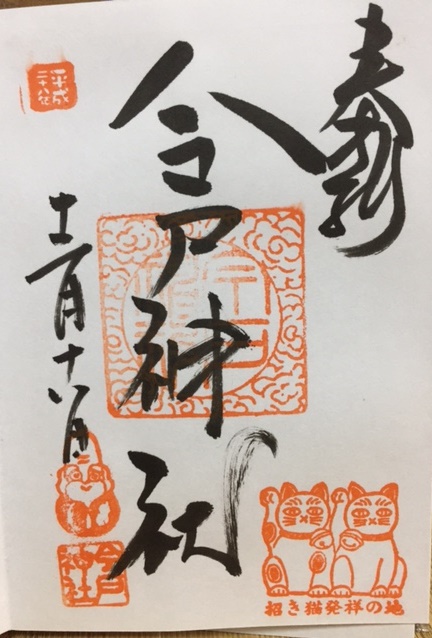 奉拝
今戸神社
平成
二十八年
十二月十八日
今戸
神社
招き猫発祥の地